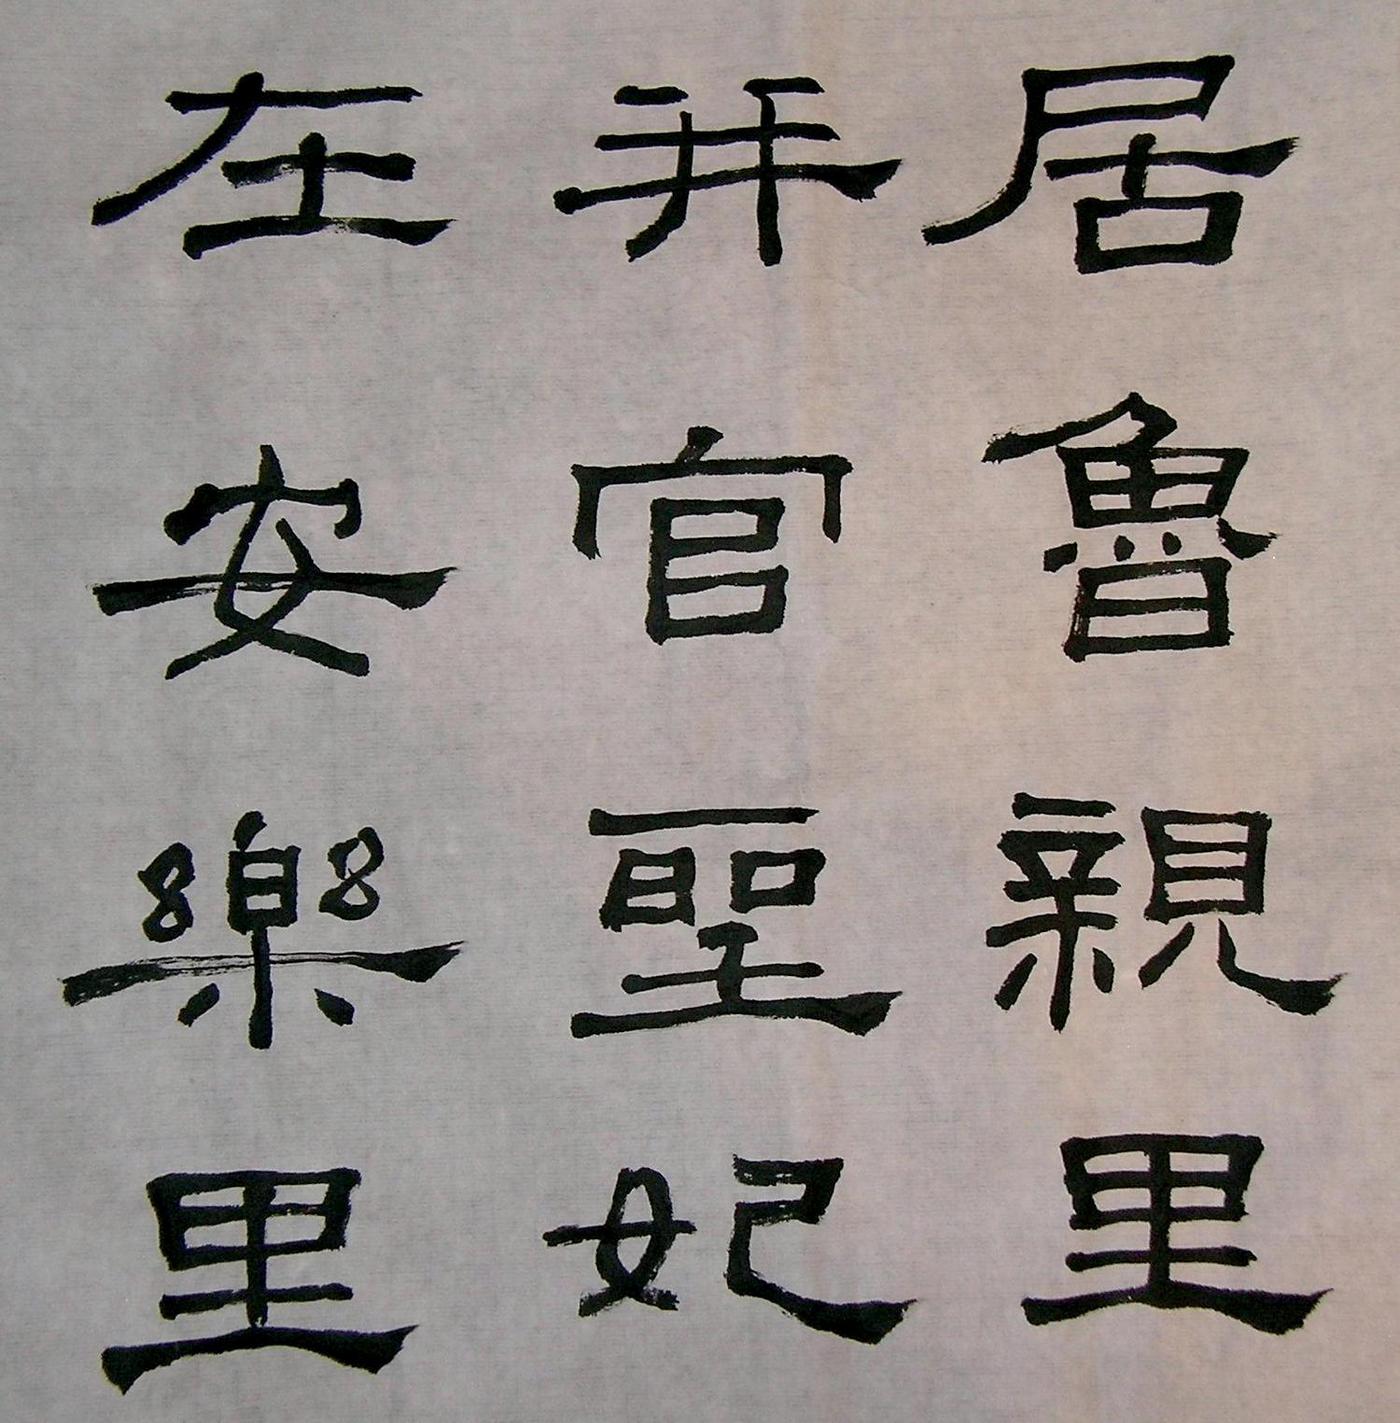 居魯親里
并官聖妃
在安樂里